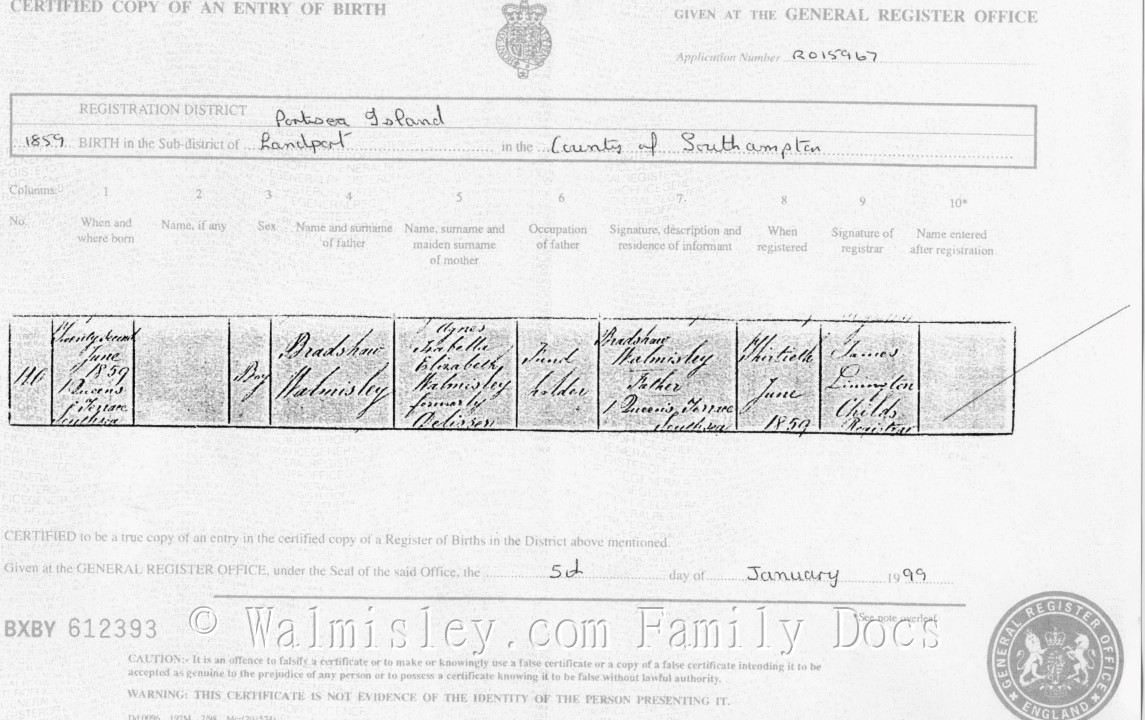 CERTIFIED COPY OF AN ENTRY OF BIRTH
GIVEN AT THE GENERAL REGISTER OFFICE
Application Number R015967
REGISTRATION DISTRICT Portsea Island
1859 BIRTH in the Sub-district of Landport in the County of Southampton
Columns:- 1 2 3 4 5 6 7 8 9 10*
No. When and where born Name, if any Sex Name and surname of father Name, surname and maiden surname of mother Occupation of father Signature, description and residence of informant When registered Signature of registrar Name entered after registration
Twenty second June 1859 1 Queens Terrace Southsea Boy Bradshaw Walmisley Agnes Isabella Elizabeth Walmisley formerly Delissen Fund holder Bradshaw Walmisley Father 1 Queens Terrace Southsea Thirtieth June 1859 James Childs Registrar
CERTIFIED to be a true copy of an entry in the certified copy of a Register of Births in the District above mentioned.
Given at the GENERAL REGISTER OFFICE, under the Seal of the said Office, the day of January 1999
*See note overleaf
BXBY 612393
© Walmisley.com Family Docs
CAUTION:- It is an offence to falsify a certificate or to make or knowingly use a false certificate or a copy of a false certificate intending it to be
accepted as genuine to the prejudice of any person or to possess a certificate knowing it to be false without lawful authority.
WARNING: THIS CERTIFICATE IS NOT EVIDENCE OF THE IDENTITY OF THE PERSON PRESENTING IT.
GENERAL REGISTER OFFICE
ENGLAND